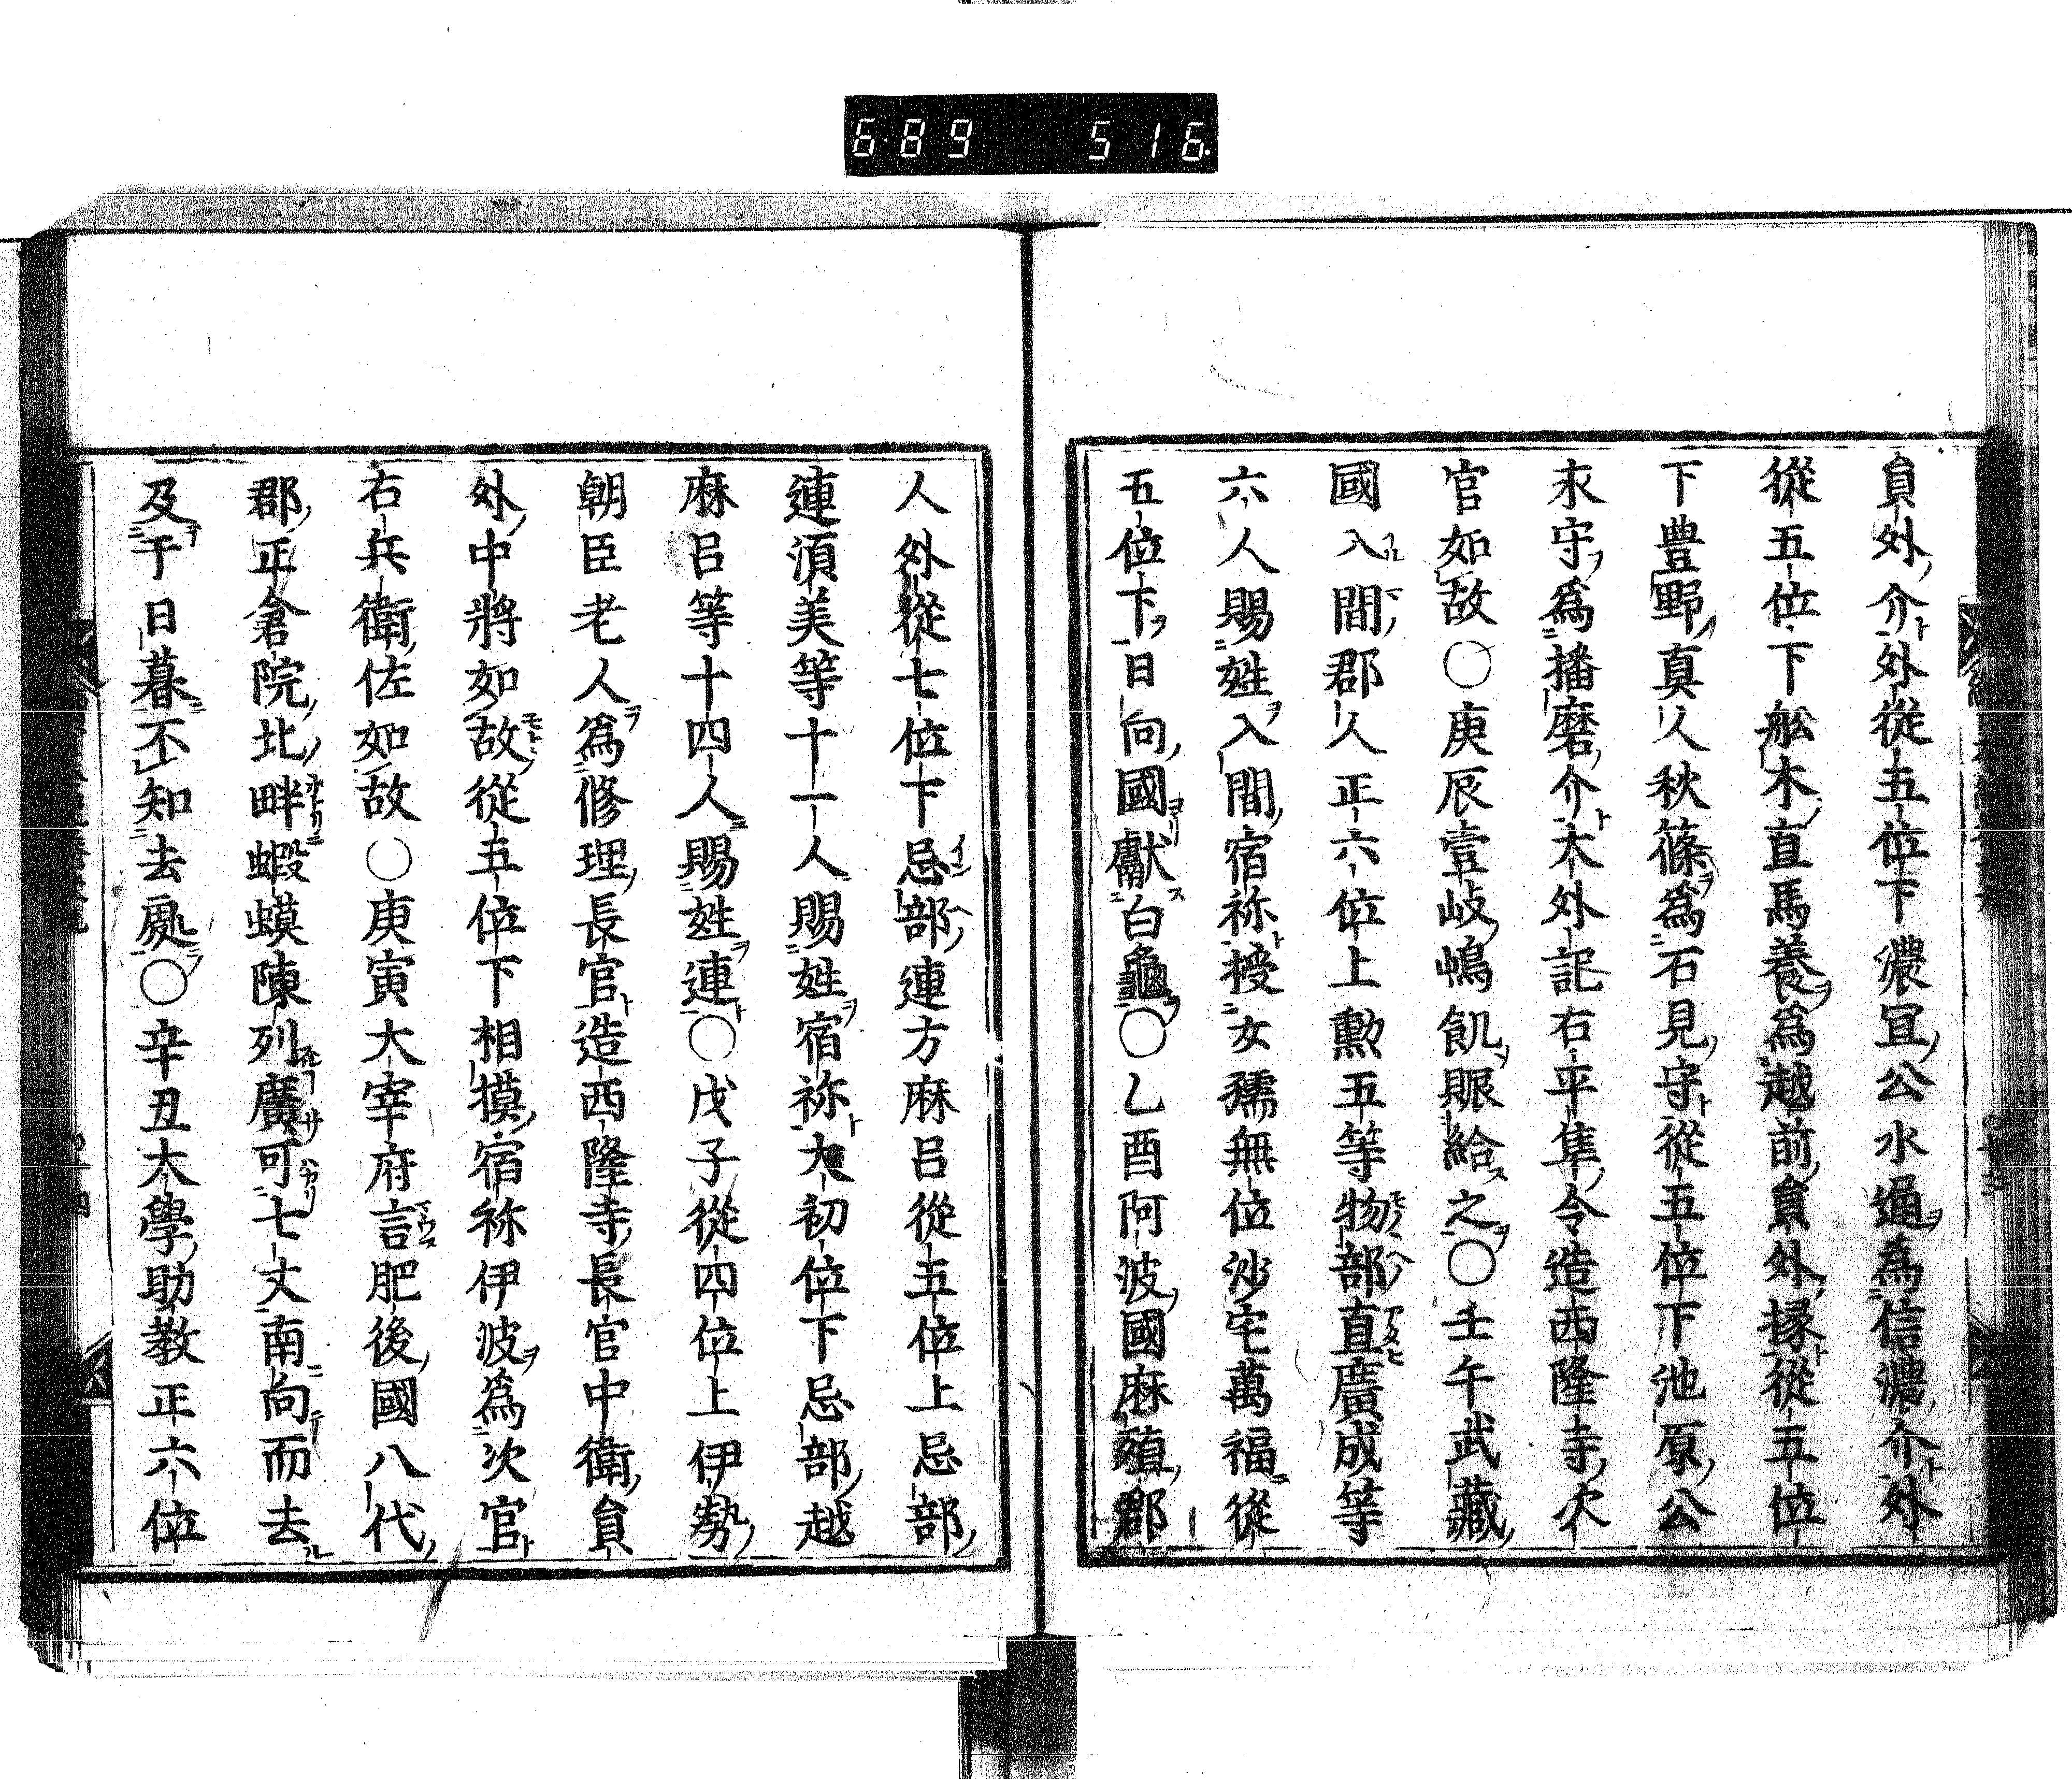 6.89 516.
員外介外從五位下濃冝公水通爲信濃介外
從五位下舩木直馬養爲越前員外掾從五位
下豊野真人秋篠爲石見守從五位下池原公
禾守爲播磨介大外記右平隼令造西隆寺次
官如故〇庚辰壹岐嶋飢賑給之〇壬午武藏
國入間郡人正六位上勲五等物部直廣成等
六人賜姓入間宿祢授女孺無位沙宅萬福從
五位下日向國獻白龜〇乙酉阿波國麻殖郡
人外從七位下忌部連方麻呂從五位上忌部
連須美等十一人賜姓宿祢大初位下忌部越
麻呂等十四人賜姓連〇戊子從四位上伊勢
朝臣老人爲修理長官造西隆寺長官中衛員
外中將如故從五位下相摸宿祢伊波爲次官
右兵衛佐如故〇庚寅大宰府言肥後國八代
郡正倉院北畔蝦蟆陳列廣可七丈南向而去
及于日暮不知去處〇辛丑大學助教正六位